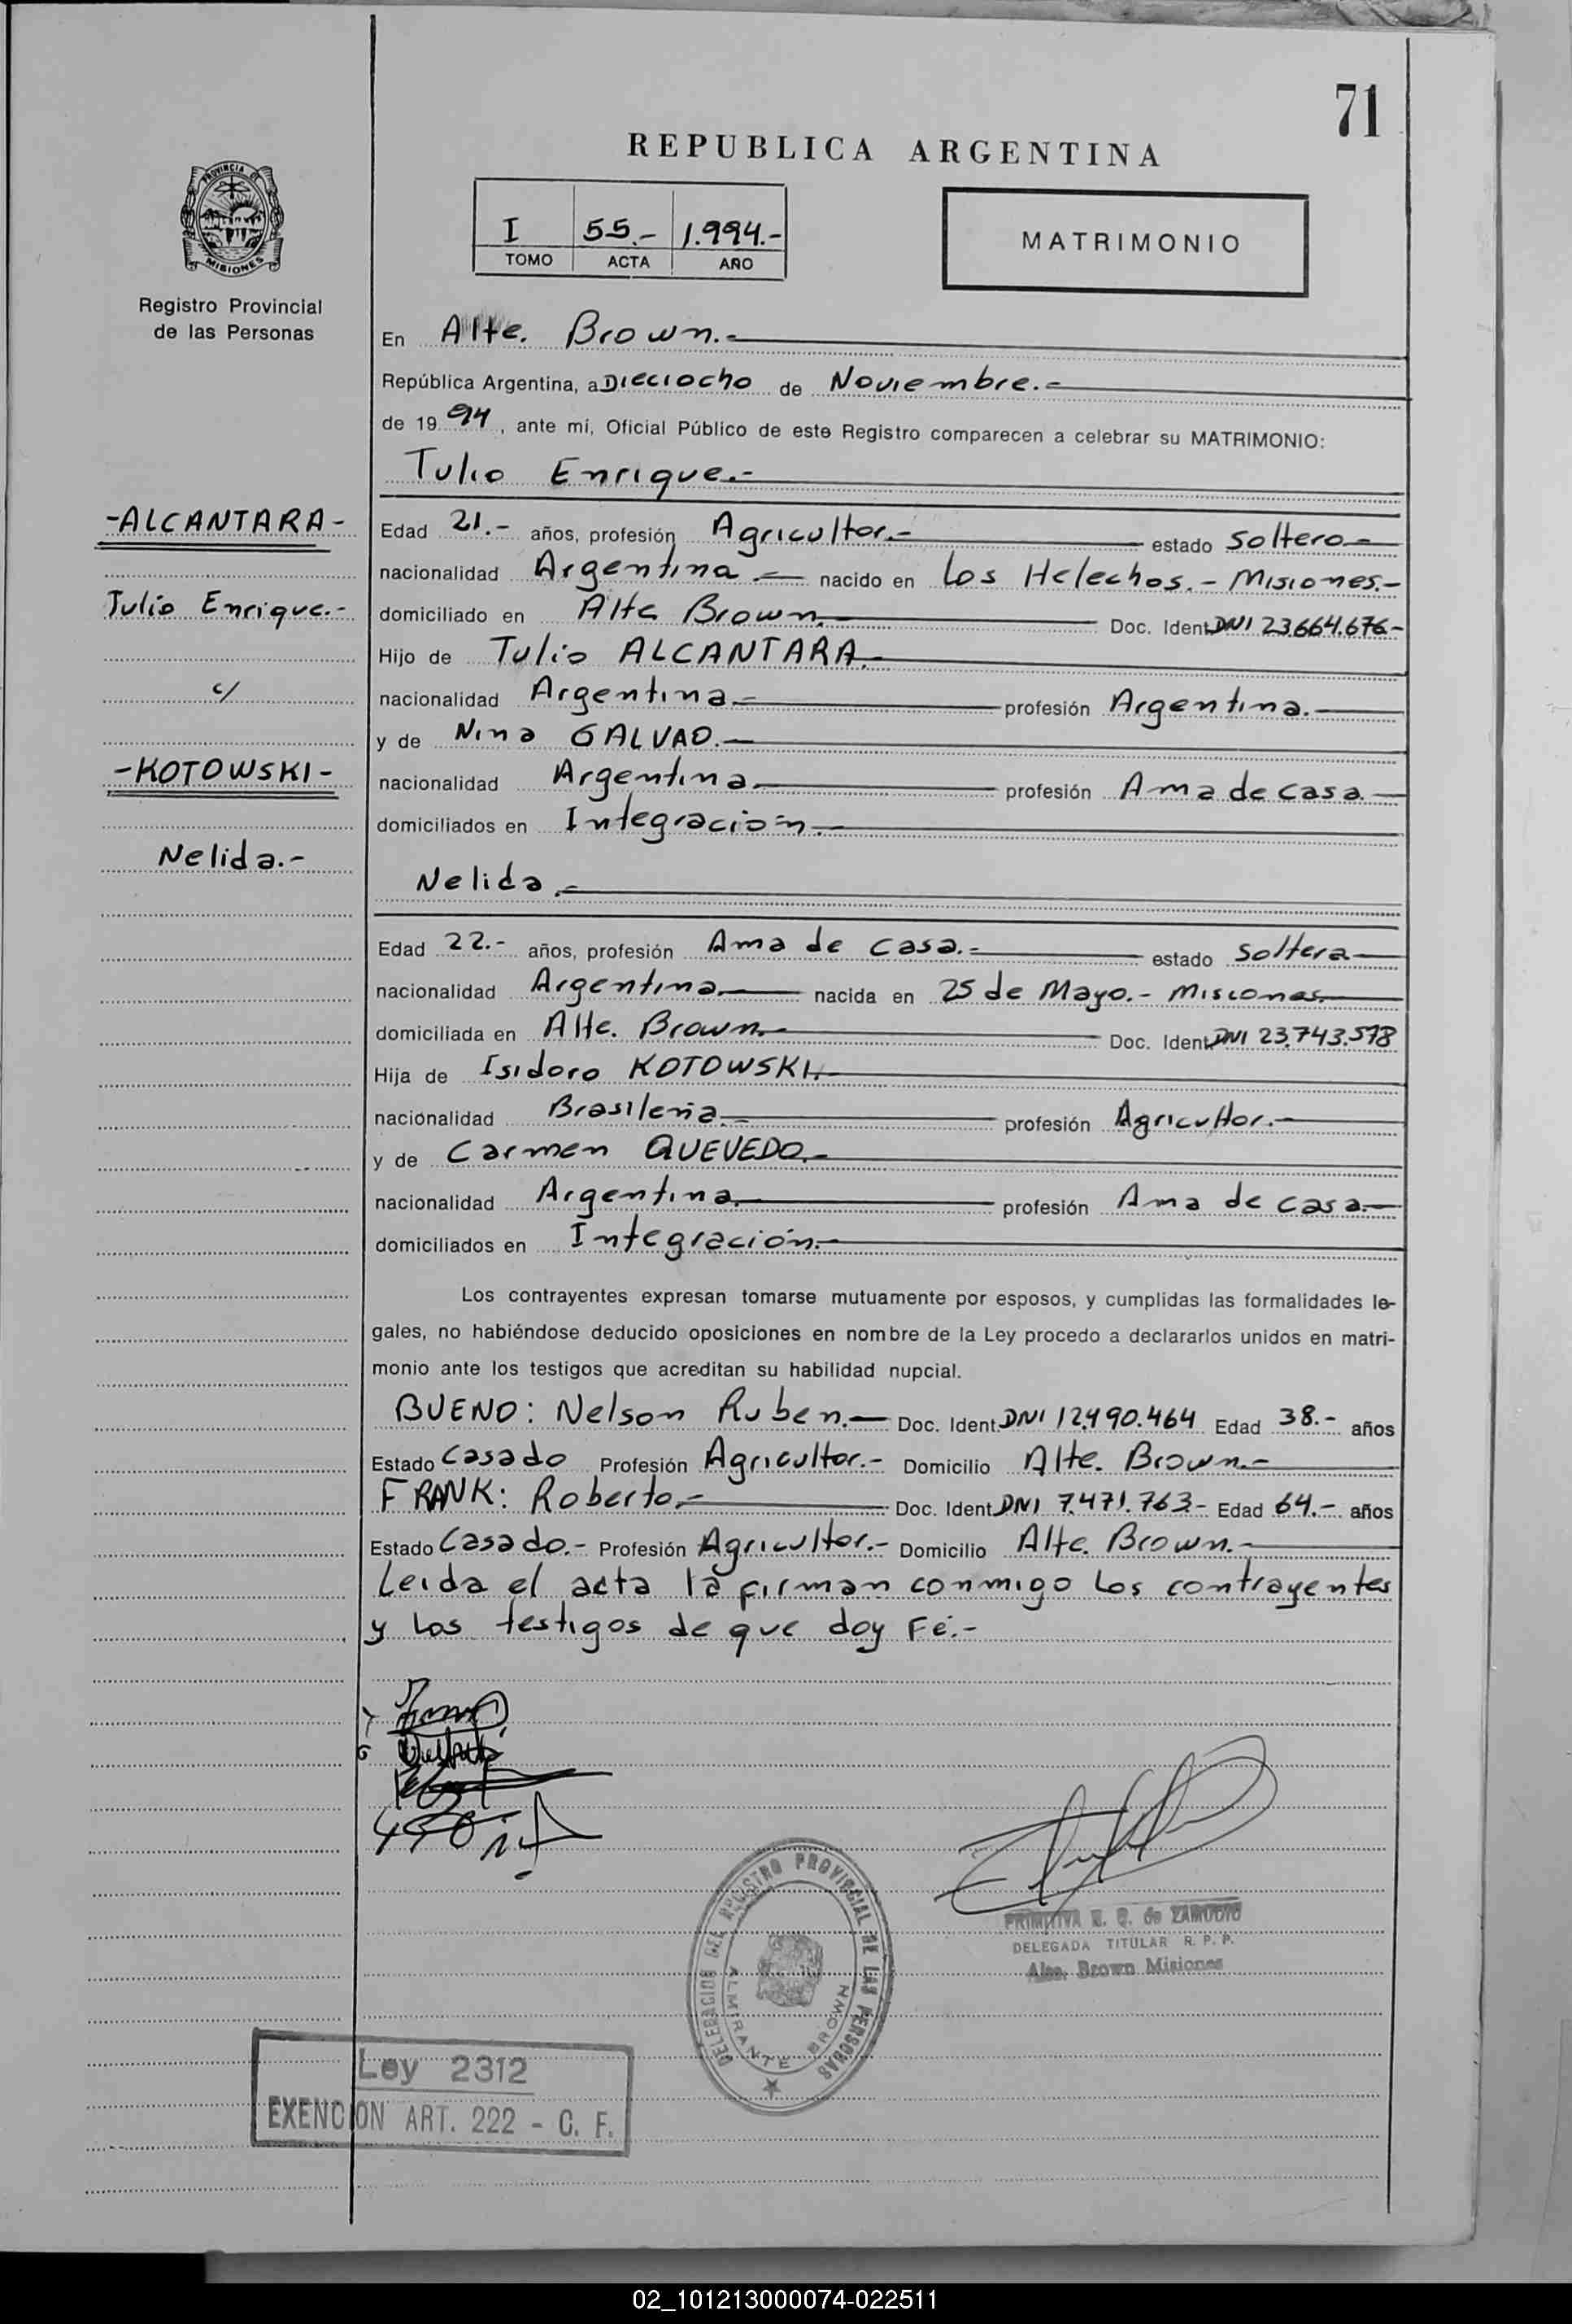 71
REPUBLICA ARGENTINA
PROVINCIA DE
MISIONES
Registro Provincial
de las Personas
I 55.- 1.994.-
TOMO ACTA AÑO
MATRIMONIO
En Alte. Brown.-
República Argentina, a Dieciocho de Noviembre.-
de 19 94, ante mí, Oficial Público de este Registro comparecen a celebrar su MATRIMONIO:
Tulio Enrique.-
-ALCANTARA-
Tulio Enrique.-
c/
-KOTOWSKI-
Nelida.-
Edad 21.- años, profesión Agricultor.- estado Soltero-
nacionalidad Argentina- nacido en Los Helechos.- Misiones.-
domiciliado en Alte Brown.- Doc. Ident. DNI 23.664.676-
Hijo de Tulio ALCANTARA.-
nacionalidad Argentina.- profesión Argentina.-
y de Nina GALVAO.-
nacionalidad Argentina.- profesión Ama de casa.-
domiciliados en Integración.-
Nelida.-
Edad 22.- años, profesión Ama de casa.- estado Soltera-
nacionalidad Argentina.- nacida en 25 de Mayo.- Misiones.-
domiciliada en Alte. Brown.- Doc. Ident. DNI 23.743.578
Hija de Isidoro KOTOWSKI.-
nacionalidad Brasileña.- profesión Agricultor.-
y de Carmen QUEVEDO.-
nacionalidad Argentina.- profesión Ama de casa.-
domiciliados en Integración.-
Los contrayentes expresan tomarse mutuamente por esposos, y cumplidas las formalidades le-
gales, no habiéndose deducido oposiciones en nombre de la Ley procedo a declararlos unidos en matri-
monio ante los testigos que acreditan su habilidad nupcial.
BUENO: Nelson Ruben.- Doc. Ident. DNI 12.490.464 Edad 38.- años
Estado Casado Profesión Agricultor.- Domicilio Alte. Brown.-
FRANK: Roberto.- Doc. Ident. DNI 7.471.763- Edad 64.- años
Estado Casado.- Profesión Agricultor.- Domicilio Alte. Brown.-
Leida el acta la firman conmigo los contrayentes
y los testigos de que doy Fé.-
DELEGACION DEL REGISTRO PROVINCIAL DE LAS PERSONAS
ALMIRANTE BROWN
PRIMITIVA de ZAMUDIO
DELEGADA TITULAR R. P. P.
Alte. Brown Misiones
Ley 2312
EXENCION ART. 222 - C. F.
02_101213000074-022511